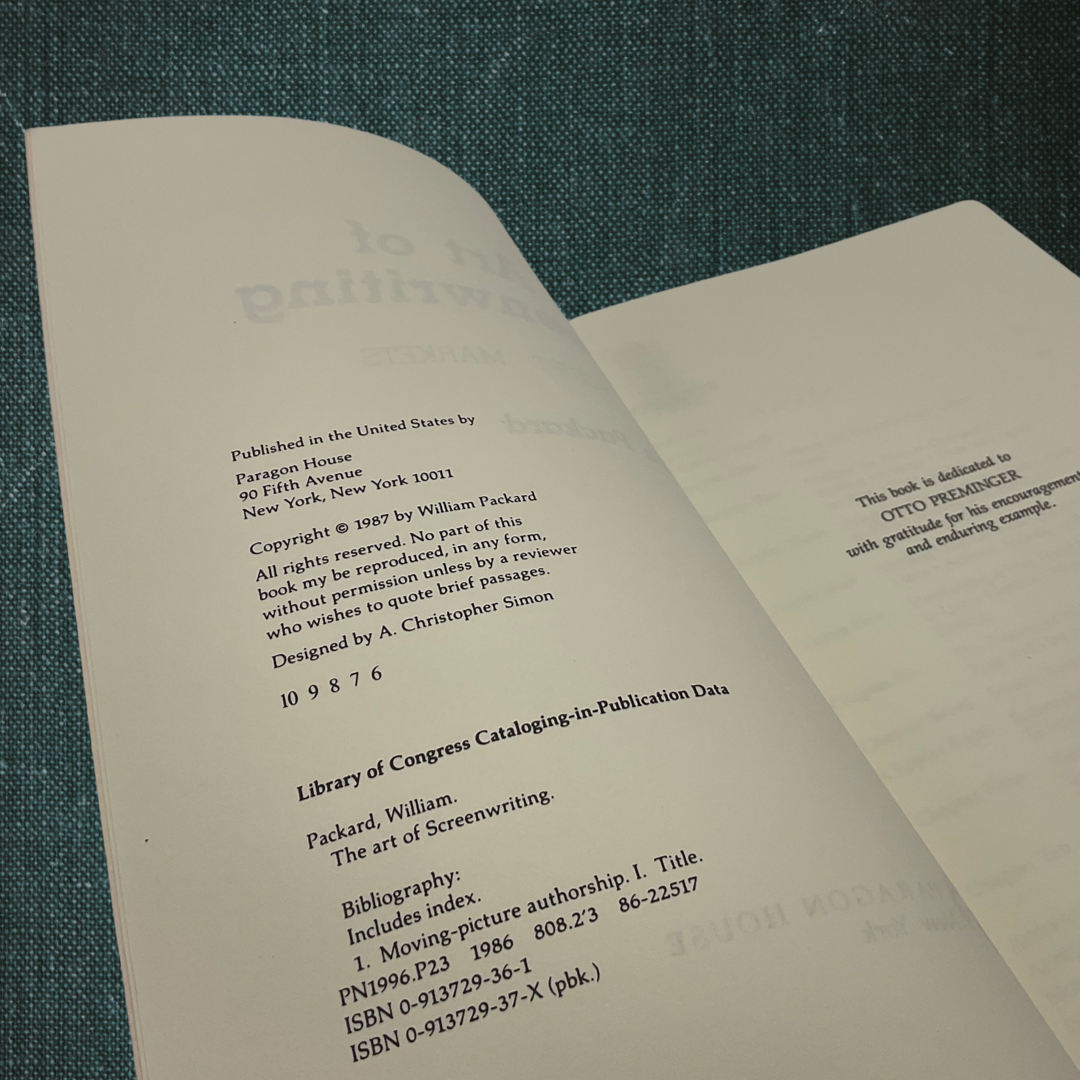 Published in the United States by
Paragon House
90 Fifth Avenue
New York, New York 10011
Copyright © 1987 by William Packard
All rights reserved. No part of this
book my be reproduced, in any form,
without permission unless by a reviewer
who wishes to quote brief passages.
Designed by A. Christopher Simon
10 9 8 7 6
Library of Congress Cataloging-in-Publication Data
Packard, William.
The art of Screenwriting.
Bibliography:
Includes index.
1. Moving-picture authorship. I. Title.
PN1996.P23 1986 808.2'3 86-22517
ISBN 0-913729-36-1
ISBN 0-913729-37-X (pbk.)
This book is dedicated to
OTTO PREMINGER
with gratitude for his encouragement
and enduring example.